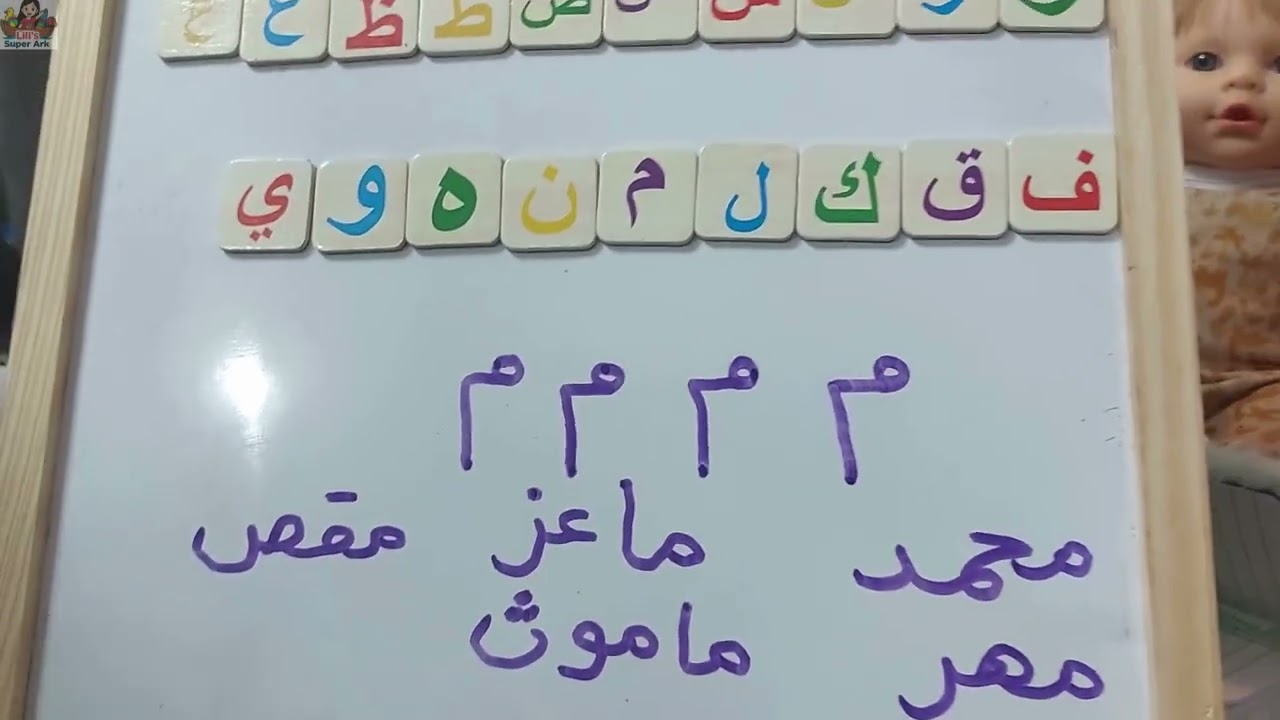 Lili's
Super Ark
ض ط ظ ع غ
ف ق ك ل م ن ه و ي
م م م م
محمد ماعز مقص
مهر ماموث